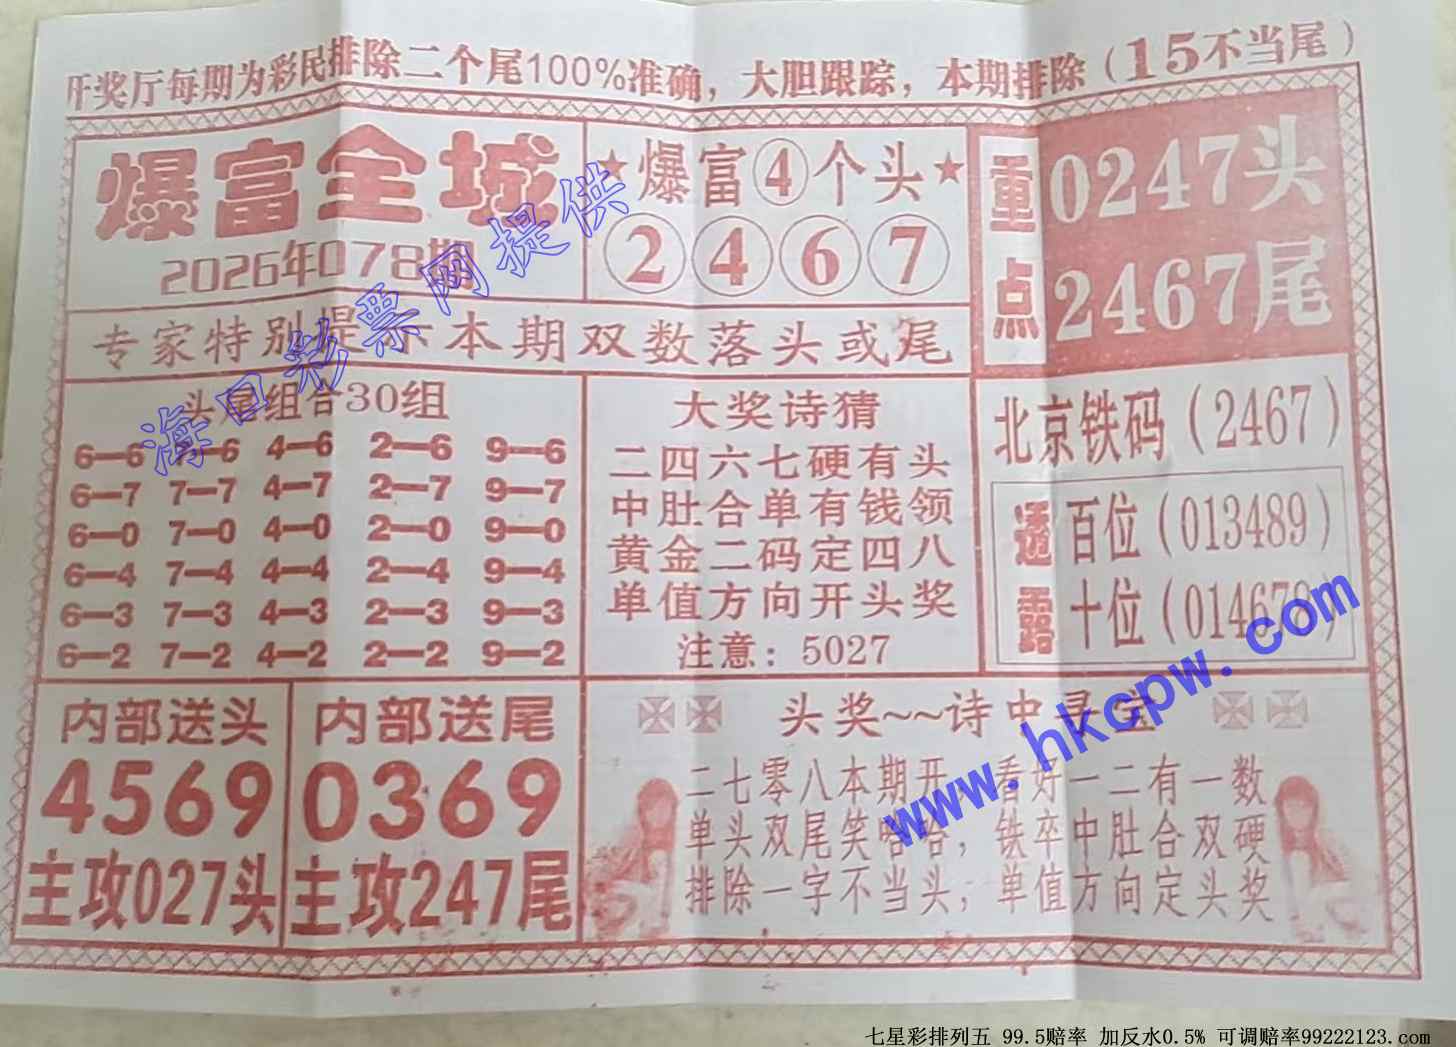 开奖厅每期为彩民排除二个尾100%准确，大胆跟踪，本期排除（15不当尾）
爆富全城
2026年078期
★爆富④个头★
② ④ ⑥ ⑦
重点
0247头
2467尾
专家特别提示本期双数落头或尾
头尾组合30组
6—6 7—6 4—6 2—6 9—6
6—7 7—7 4—7 2—7 9—7
6—0 7—0 4—0 2—0 9—0
6—4 7—4 4—4 2—4 9—4
6—3 7—3 4—3 2—3 9—3
6—2 7—2 4—2 2—2 9—2
大奖诗猜
二四六七硬有头
中肚合单有钱领
黄金二码定四八
单值方向开头奖
注意：5027
北京铁码（2467）
透露
百位（013489）
十位（014679）
内部送头
4569
主攻027头
内部送尾
0369
主攻247尾
头奖~~诗中寻宝
二七零八本期开，看好一二有一数
单头双尾笑哈哈，铁卒中肚合双硬
排除一字不当头；单值方向定头奖
海口彩票网提供
www.hkcpw.com
七星彩排列五 99.5赔率 加反水0.5% 可调赔率99222123.com